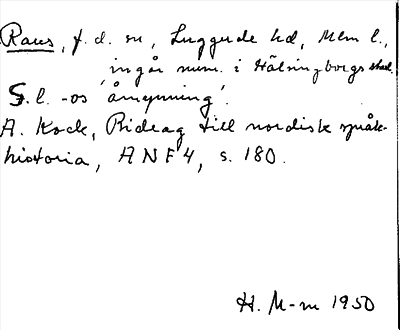 Raus, f. d. sn, Luggude hd, Mlm l.,
ingår num. i Hälsingborgs stad.
S. l. -os 'åmynning'.
A. Kock, Bidrag till nordisk språk-
historia, ANF 4, s. 180.
H. M-m 1950